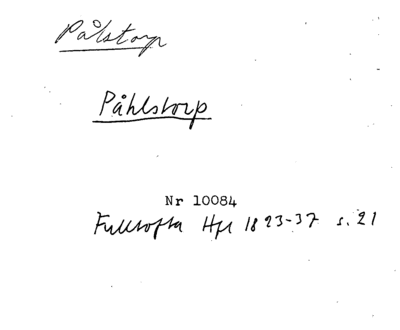 Pålstorp
Påhlstorp
Nr 10084
Fulltofta Hfl 1823-37 s. 21